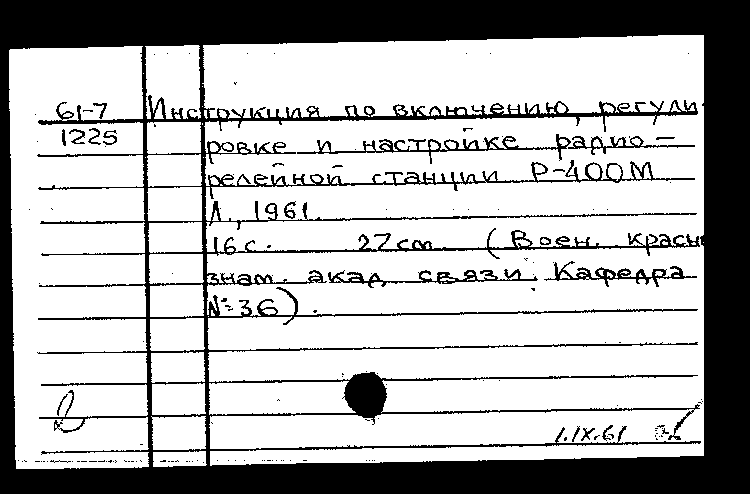 61-7
1225
Инструкция по включению, регули-
ровке и настройке радио-
релейной станции Р-400М
Л., 1961.
16 с. 27 cm. (Воен. красно
знам. акад. связи. Кафедра
№ 36).
1.IX.61